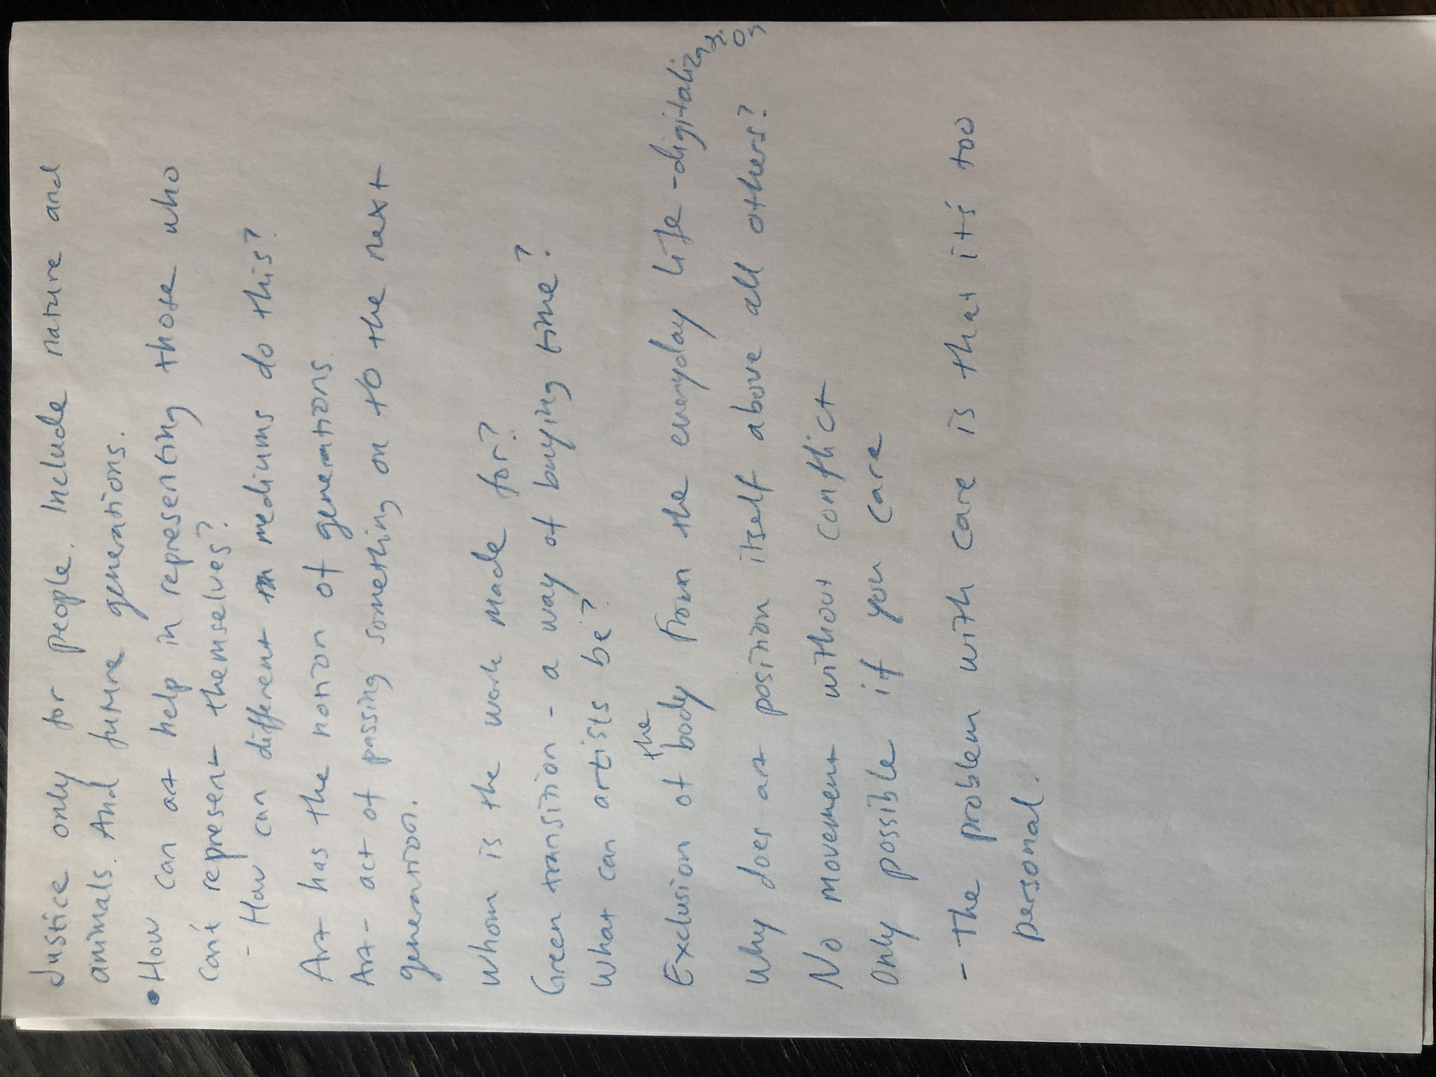 Justice only for people. Include nature and
animals. And future generations.
• How can art help in representing those who
can't represent themselves?
- How can different mediums do this?
Art has the notion of generations.
Art - act of passing something on to the next
generation.
Whom is the work made for?
Green transition - a way of buying time?
What can artists be?
Exclusion of the body from the everyday life - digitalization
Why does art position itself above all others?
No movement without conflict
Only possible if you care
- The problem with care is that it's too
personal.